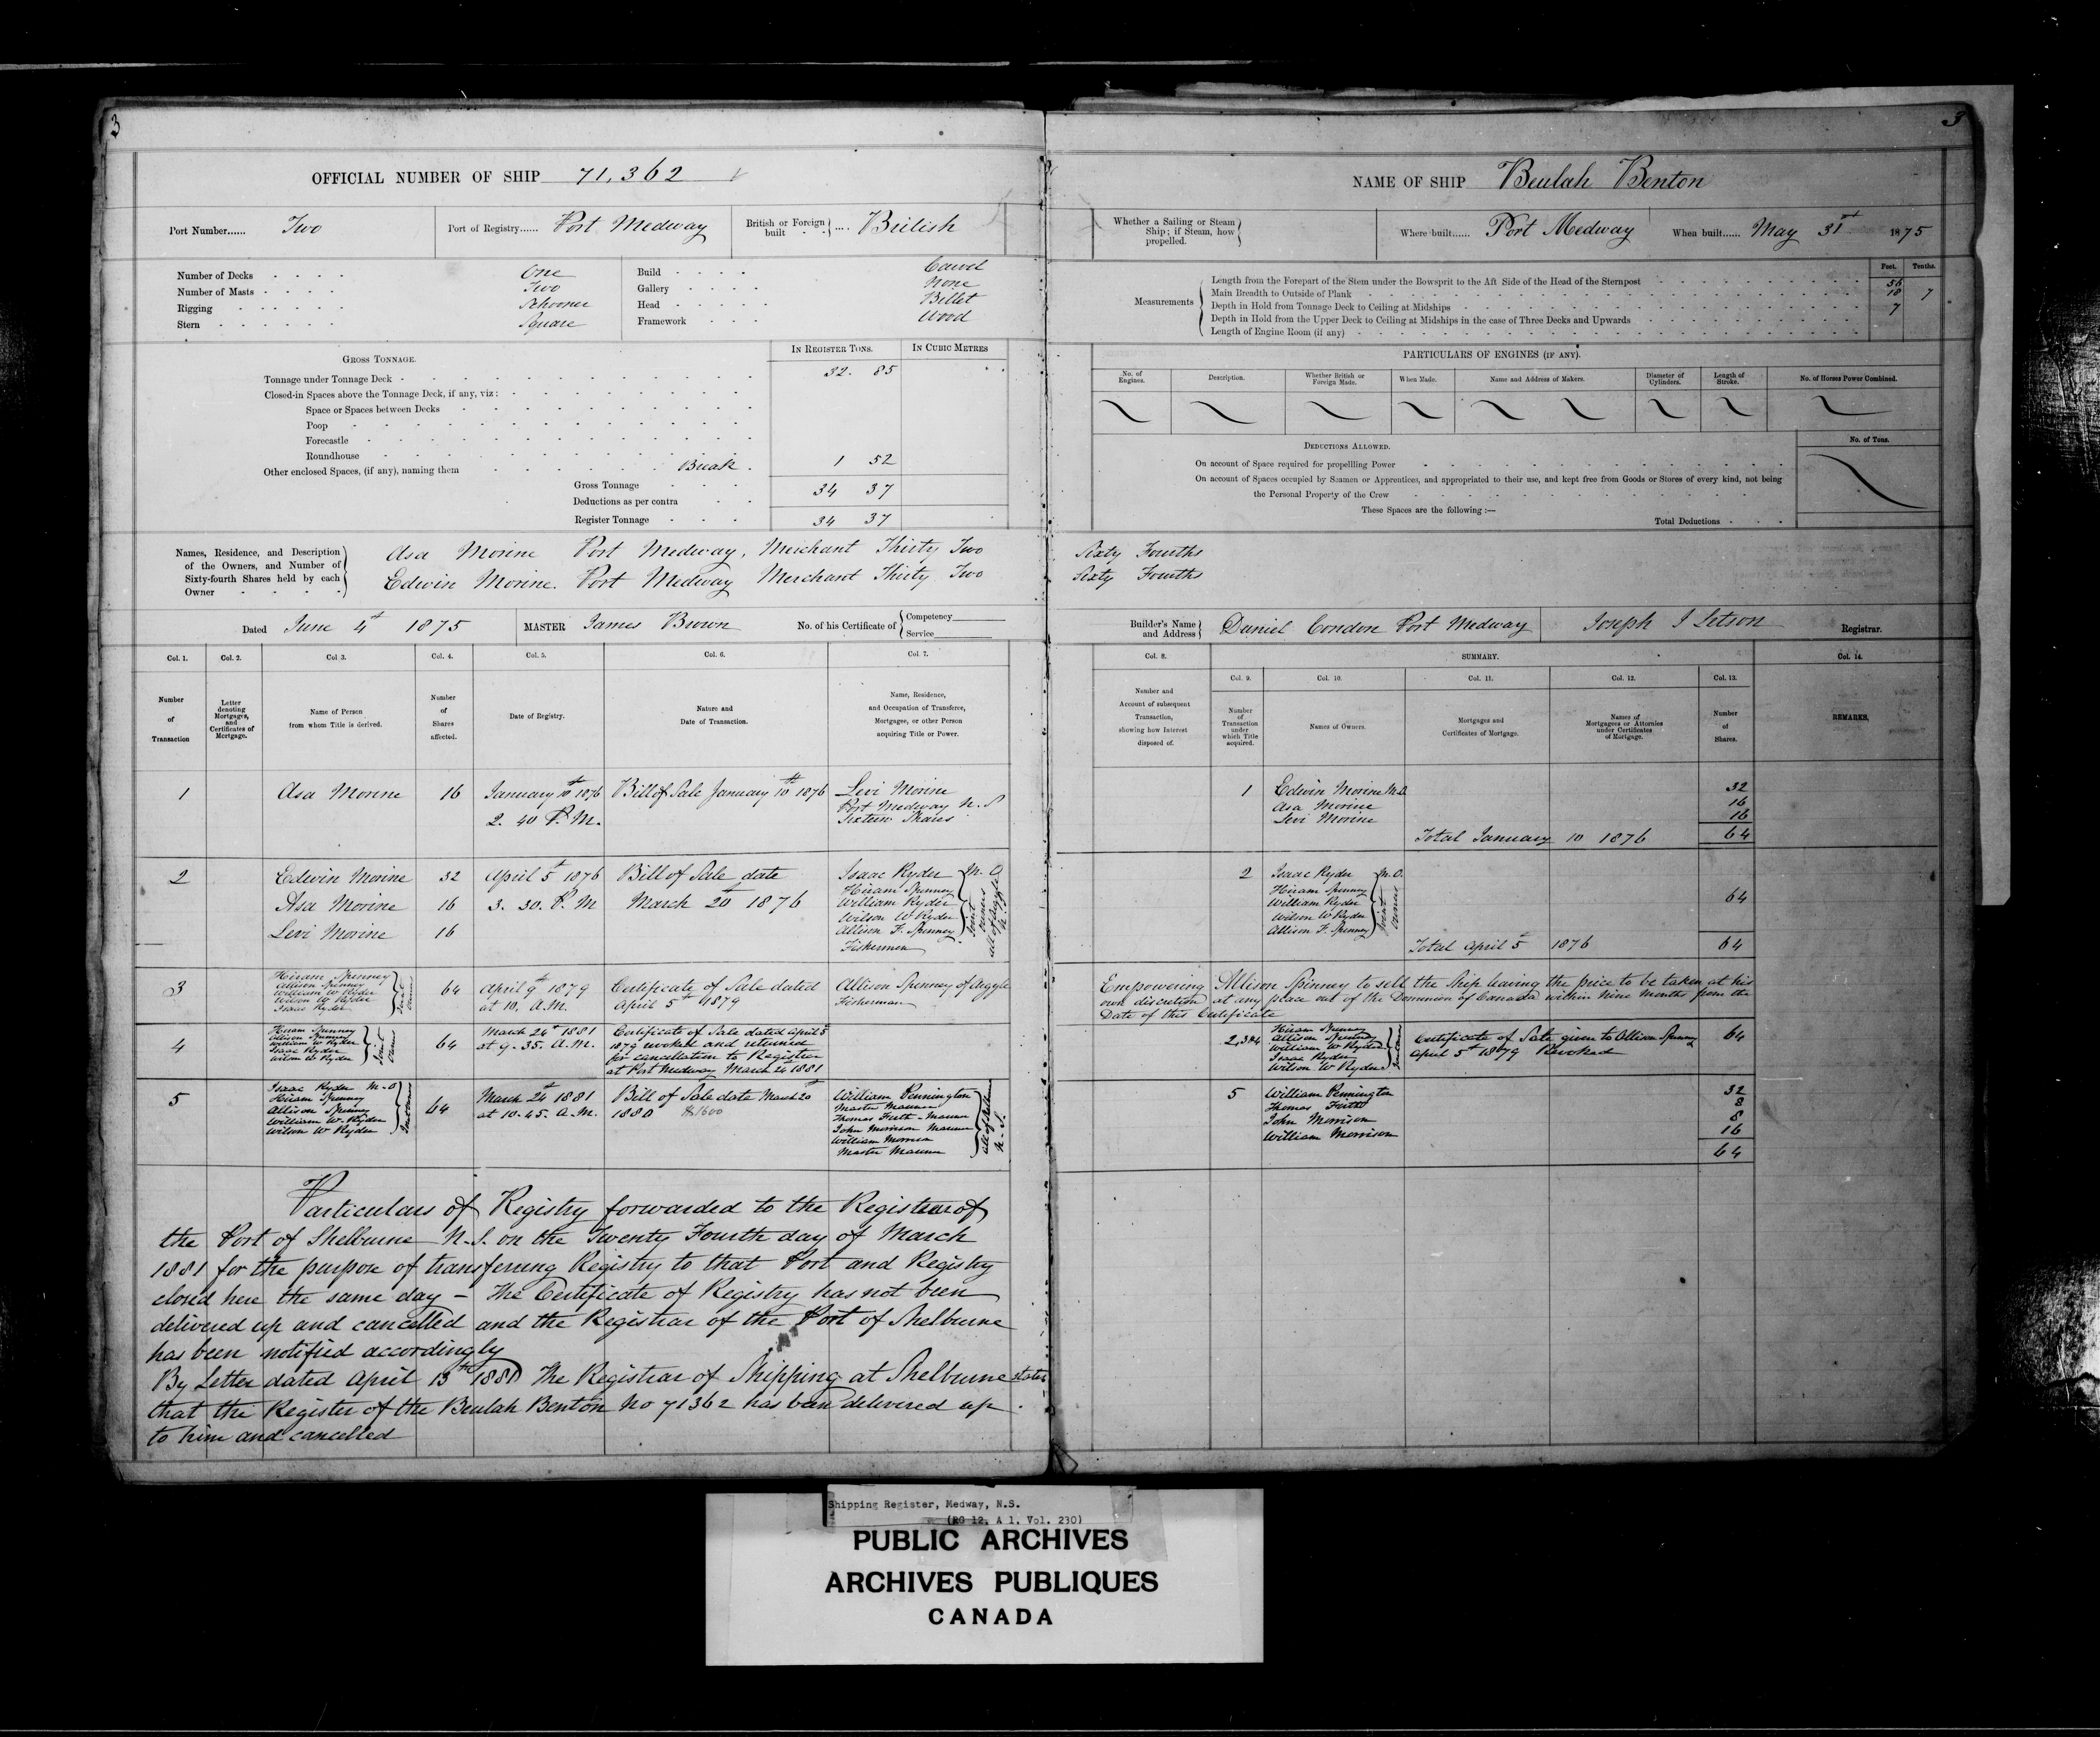 3
OFFICIAL NUMBER OF SHIP 71,362
Port Number...... Two
Port of Registry...... Port Medway
British or Foreign built .... British
Number of Decks One
Number of Masts Two
Rigging Schooner
Stern Square
Build Carvel
Gallery None
Head Billet
Framework Wood
GROSS TONNAGE.
IN REGISTER TONS.
IN CUBIC METRES
Tonnage under Tonnage Deck 32. 85
Closed-in Spaces above the Tonnage Deck, if any, viz:
Space or Spaces between Decks
Poop
Forecastle
Roundhouse
Other enclosed Spaces, (if any), naming them Break 1 52
Gross Tonnage 34 37
Deductions as per contra
Register Tonnage 34 37
Names, Residence, and Description of the Owners, and Number of Sixty-fourth Shares held by each Owner
Asa Morine Port Medway, Merchant Thirty Two
Edwin Morine. Port Medway Merchant Thirty Two
Dated June 4th 1875
MASTER James Brown
No. of his Certificate of Competency Service
Col. 1. Col. 2. Col 3. Col. 4. Col. 5. Col. 6. Col. 7.
Number of Transaction
Letter denoting Mortgages, and Certificates of Mortgage.
Name of Person from whom Title is derived.
Number of Shares affected.
Date of Registry.
Nature and Date of Transaction.
Name, Residence, and Occupation of Transferee, Mortgagee, or other Person acquiring Title or Power.
1
Asa Morine
16
January 10th 1876
2. 40 P.M.
Bill of Sale January 10th 1876
Levi Morine
Port Medway N.S
Sixteen Shares
2
Edwin Morine 32
Asa Morine 16
Levi Morine 16
April 5th 1876
3. 30. P.M
Bill of Sale date
March 20th 1876
Isaac Ryder M.O
Hiram Spenney
William Ryder
Wilson W Ryder
Allison F. Spenney
Fishermen
Joint owners
all of Argyle
N.S
3
Hiram Spenney
Allison Spenney
William W Ryder
Wilson W Ryder
Isaac Ryder
Joint Owners
64
April 9th 1879
at 10. A.M.
Certificate of Sale dated
April 5th 1879
Allison Spenney of Argyle
Fisherman
4
Hiram Spenney
Allison Spenney
William W Ryder
Isaac Ryder
Wilson W Ryder
Joint Owners
64
March 24th 1881
at 9.35. A.M.
Certificate of Sale dated April 5th
1879 revoked and returned
for cancellation to Registrar
at Port Medway March 24 1881
5
Isaac Ryder M.O
Hiram Spenney
Allison Spenney
William W. Ryder
Wilson W Ryder
64
March 24th 1881
at 10.45. A.M.
Bill of Sale date March 20th
1880 $1600
William Pennington
Master Mariner
Thomas Firth - Mariner
John Morrison Mariner
William Morrison
Master Mariner
all of Shelburne
N.S.
Particulars of Registry forwarded to the Registrar of
the Port of Shelburne N.S. on the Twenty Fourth day of March
1881 for the purpose of transferring Registry to that Port and Registry
closed here the same day – The Certificate of Registry has not been
delivered up and cancelled and the Registrar of the Port of Shelburne
has been notified accordingly
By Letter dated April 13th 1881 The Registrar of Shipping at Shelburne states
that the Register of the Beulah Benton No 71362 has been delivered up
to him and cancelled
3
NAME OF SHIP Beulah Benton
Whether a Sailing or Steam Ship; if Steam, how propelled.
Where built...... Port Medway
When built...... May 31st 1875
Measurements
Feet. Tenths.
Length from the Forepart of the Stem under the Bowsprit to the Aft Side of the Head of the Sternpost 56
Main Breadth to Outside of Plank 18 7
Depth in Hold from Tonnage Deck to Ceiling at Midships 7
Depth in Hold from the Upper Deck to Ceiling at Midships in the case of Three Decks and Upwards
Length of Engine Room (if any)
PARTICULARS OF ENGINES (IF ANY).
No. of Engines.
Description.
Whether British or Foreign Made.
When Made.
Name and Address of Makers.
Diameter of Cylinders.
Length of Stroke.
No. of Horses Power Combined.
DEDUCTIONS ALLOWED.
No. of Tons.
On account of Space required for propellling Power
On account of Spaces occupied by Seamen or Apprentices, and appropriated to their use, and kept free from Goods or Stores of every kind, not being
the Personal Property of the Crew
These Spaces are the following :—
Total Deductions
Sixty Fourths
Sixty Fourths
Builder's Name and Address Daniel Condon Port Medway
Joseph S Letson Registrar.
Col. 8. SUMMARY. Col. 14.
Col. 9. Col. 10. Col. 11. Col. 12. Col. 13.
Number and Account of subsequent Transaction, showing how Interest disposed of.
Number of Transaction under which Title acquired.
Names of Owners.
Mortgages and Certificates of Mortgage.
Names of Mortgagees or Attornies under Certificates of Mortgage.
Number of Shares.
REMARKS.
1
Edwin Morine M.O. 32
Asa Morine 16
Levi Morine 16
Total January 10 1876 64
2
Isaac Ryder M.O.
Hiram Spenney
William Ryder
Wilson W Ryder
Allison F. Spenney
Joint Owners
64
Total April 5th 1876 64
Empowering Allison Spinney to sell the Ship leaving the price to be taken at his
own discretion at any place out of the Dominion of Canada within Nine Months from the
Date of this Certificate
2,3&4
Hiram Spenney
Allison Spenney
William W Ryder
Isaac Ryder
Wilson W Ryder
Certificate of Sale given to Allison Spenney
April 5th 1879 Revoked
64
5
William Pennington 32
Thomas Firth 8
John Morrison 8
William Morrison 16
64
Shipping Register, Medway, N.S.
(RG 12, A 1, Vol. 230)
PUBLIC ARCHIVES
ARCHIVES PUBLIQUES
CANADA